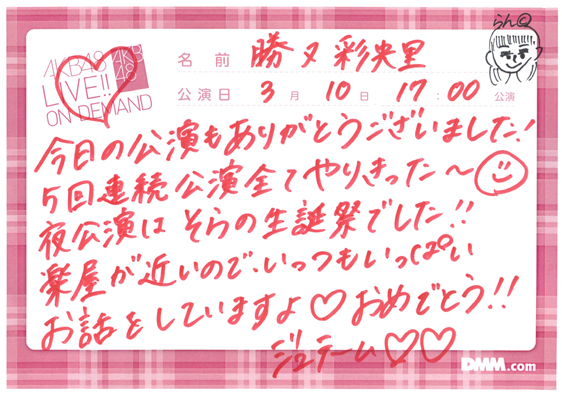 らん©
AKB48
LIVE!!
ON DEMAND
AKB
48
名前 勝又彩央里
公演日 3月10日 17:00公演
今日の公演もありがとうございました!
5回連続公演全てやりきった〜
夜公演はそらの生誕祭でした!!
楽屋が近いので、いつもいっぱい
お話をしていますよ♡おめでとう!!
ジュテーム♡♡
DMM.com